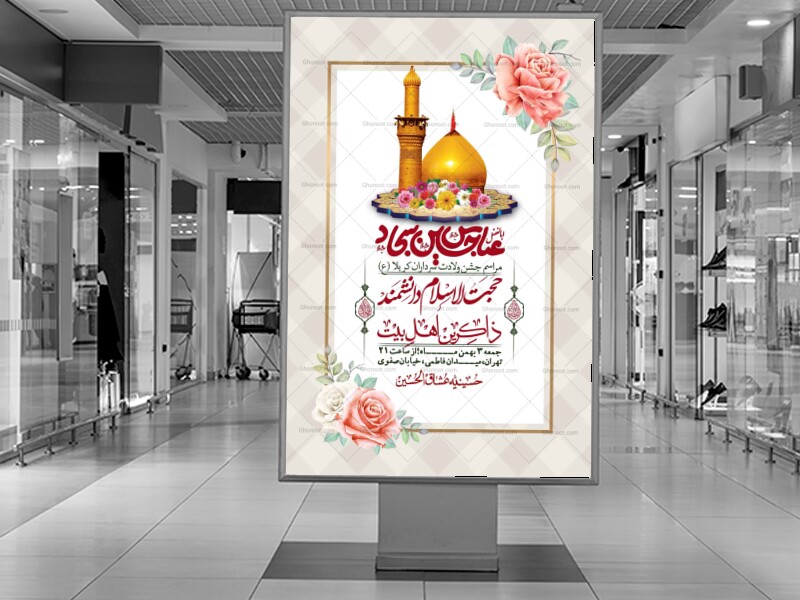 یا ابالفضل عباس حسین سجاد
مراسم جشن ولادت سرداران کربلا (ع)
حجت الاسلام دانشمند
ذاکرین اهل بیت
جمعه ۳ بهمن مـــاه از ساعت ۲۱
تهران، میـدان فاطمی، خیابان صفوی
حسینیه عشاق الحسین
Ghonoot.com